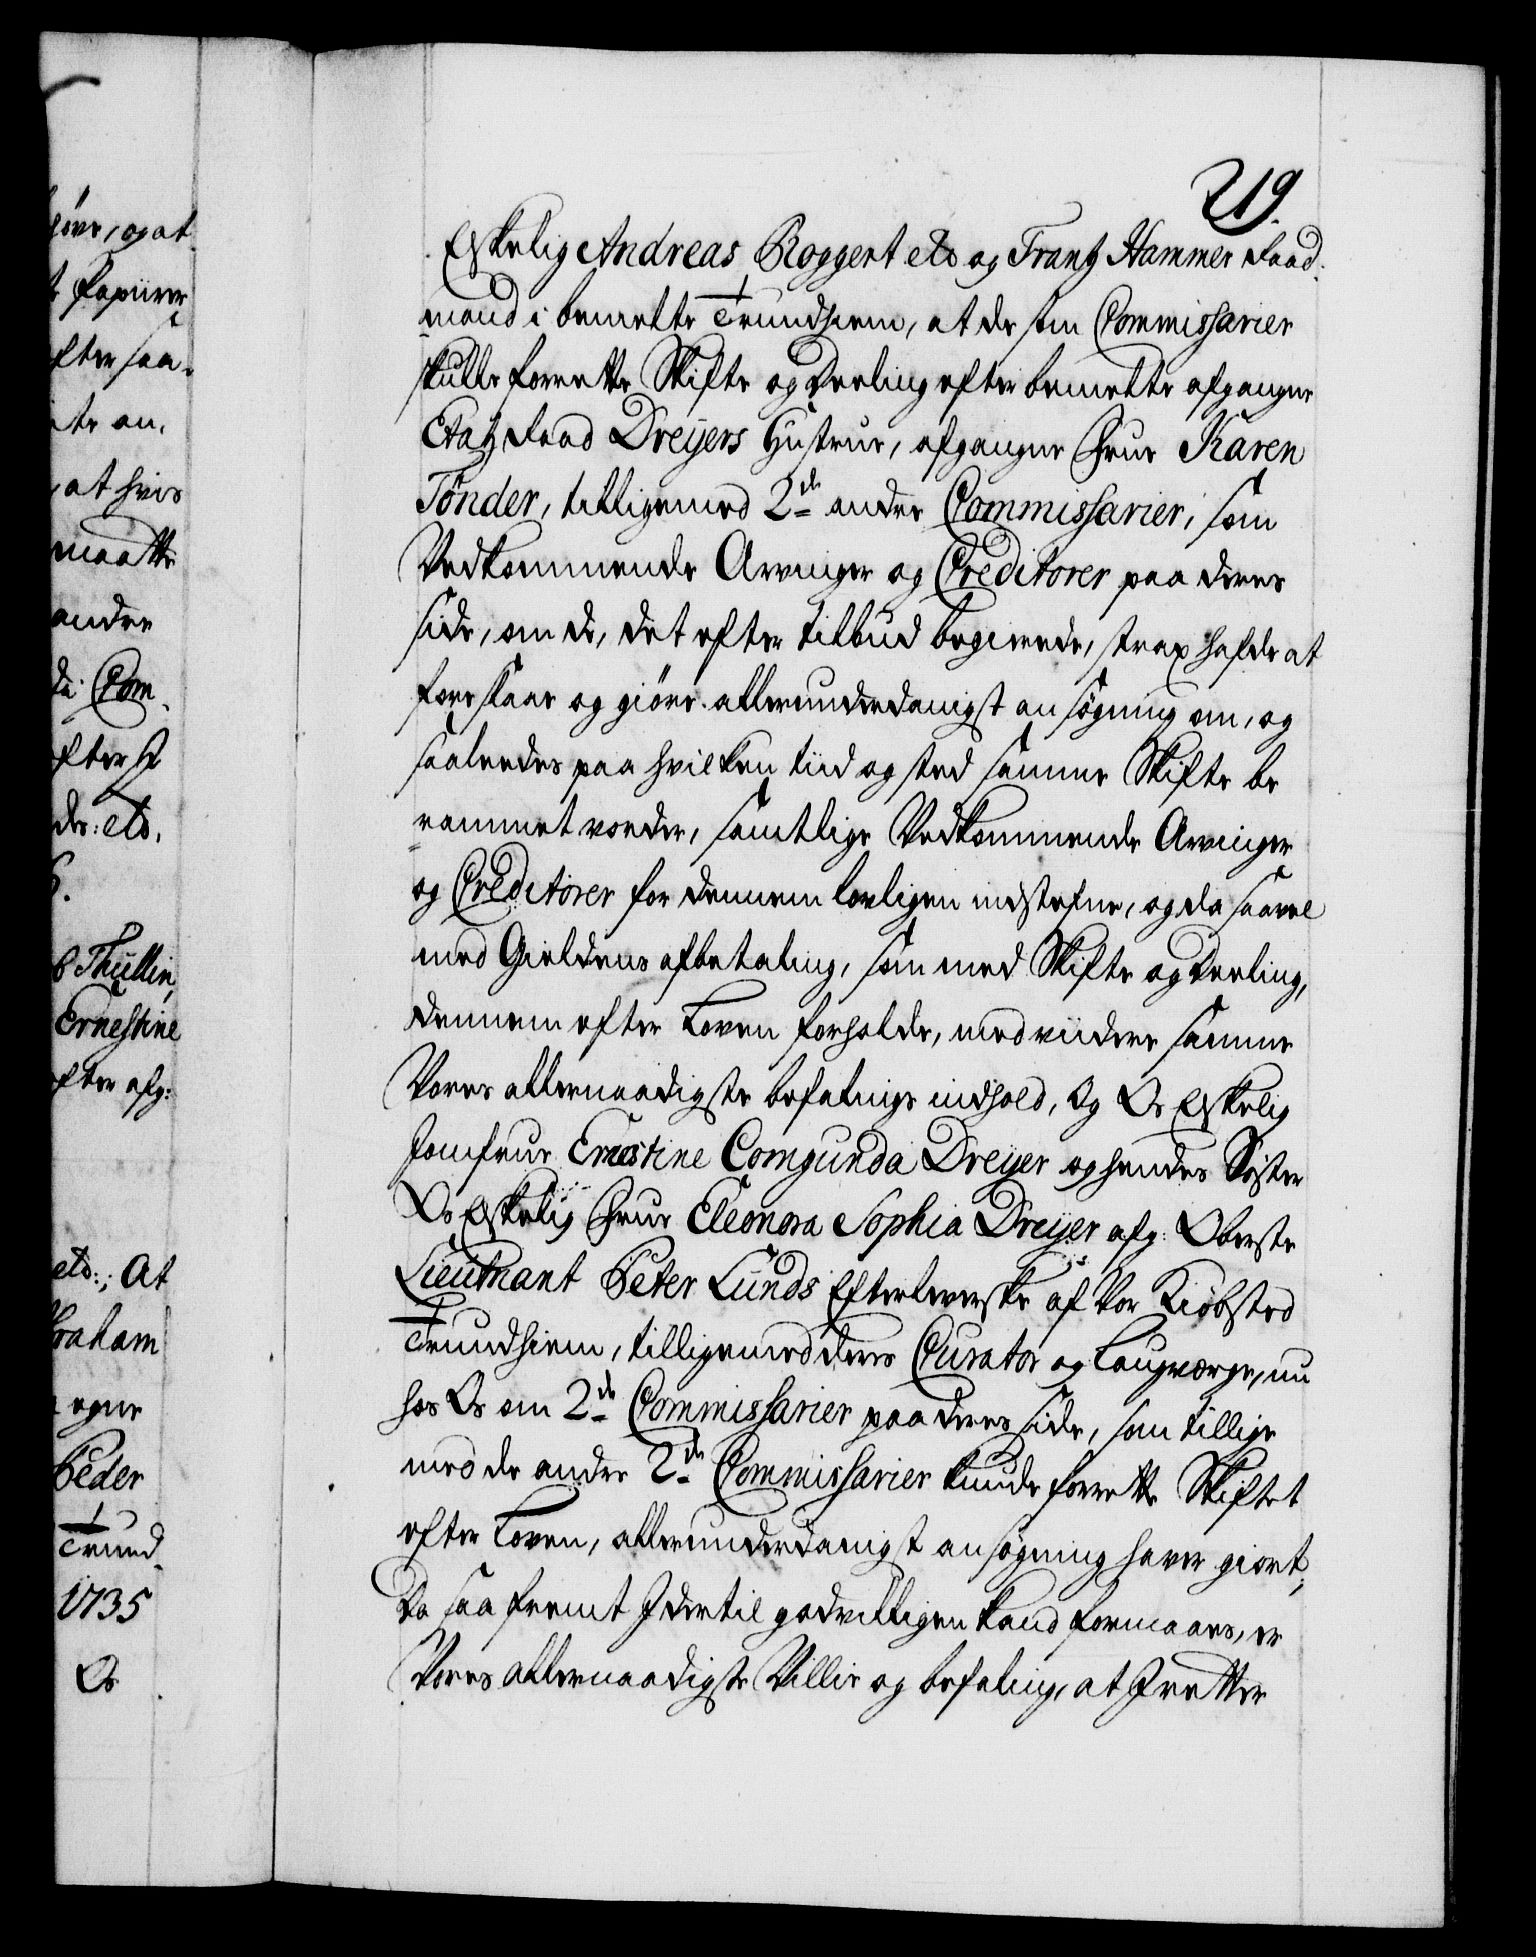 giøre, og at
t Papiirer
efter saa-
te an,
at hvis
maatte
andre
de Com-
efter st
des: etc.
6.
b Thüllin,
Ernestine
efter afg:
etc:, At
braham
egne
Peder
Trund-
1735
Os
219.
Elskelig Andreas Roggert etc og Frantz Hammer Raad-
mand i bemelte Trundhiem, at de som Commissarier
skulle forrette Skifte og Deeling efter bemelte afgangne
Etatz Raad Dreÿers Hustrue, afgangne Frue Karen
Tønder, tilligemed 2de andre Commissarier, som
Vedkommende Arvinger og Creditorer paa deres
side, om de, det efter tilbud begierede, strax hafde at
foreslaae og giøre allerunderdanigst ansøgning om, og
saaleedes paa hvilken tiid og sted samme Skifte be
rammet vorder, samtlige Vedkommende Arvinger
og Creditorer for dennem lovligen indstefne, og da saavel
med Gieldens afbetaling, som med Skifte og Deeling,
dennem efter Loven forholde, med viidere samme
Vores allernaadigste befalings indhold, Og Os Elskelig
Jomfrue Ernestine Comgunda Dreÿer og hendes Søster
Os Elskelig Frue Eleonora Sophia Dreÿer afg: Oberste
Lieutnant Peter Lunds Efterleverske af Vor Kiøbsted
Trundhiem, tilligemed deres Curator og Laugværge, nu
hos Os om 2de Commissarier paa deres side, som tillige
med de andre 2de Commissarier kunde forrette Skiftet
efter Loven, allerunderdanigst ansøgning haver giort;
Da saafremt I dertil godvilligen kand formaaes, er
Vores allernaadigste Villie og befaling, at I retter